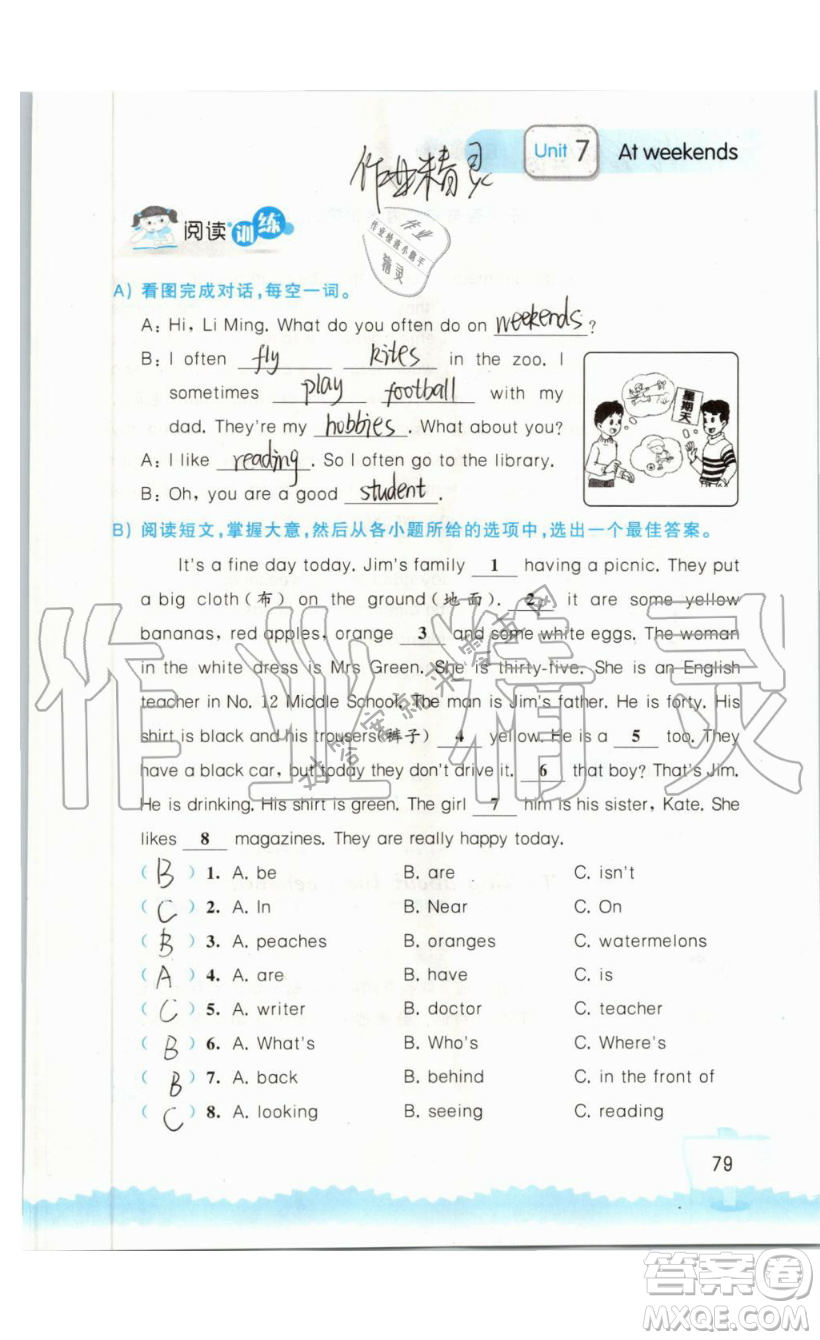 Unit 7 At weekends
作业精灵
阅读训练
作业
作业检查小助手
精灵
A) 看图完成对话,每空一词。
A: Hi, Li Ming. What do you often do on weekends?
B: I often fly kites in the zoo. I
sometimes play football with my
dad. They're my hobbies. What about you?
A: I like reading. So I often go to the library.
B: Oh, you are a good student.
星期天
B) 阅读短文,掌握大意,然后从各小题所给的选项中,选出一个最佳答案。
It's a fine day today. Jim's family 1 having a picnic. They put
a big cloth(布) on the ground(地面). 2 it are some yellow
bananas, red apples, orange 3 and some white eggs. The woman
in the white dress is Mrs Green. She is thirty-five. She is an English
teacher in No. 12 Middle School. The man is Jim's father. He is forty. His
shirt is black and his trousers(裤子) 4 yellow. He is a 5 too. They
have a black car, but today they don't drive it. 6 that boy? That's Jim.
He is drinking. His shirt is green. The girl 7 him is his sister, Kate. She
likes 8 magazines. They are really happy today.
( B ) 1. A. be B. are C. isn't
( C ) 2. A. In B. Near C. On
( B ) 3. A. peaches B. oranges C. watermelons
( A ) 4. A. are B. have C. is
( C ) 5. A. writer B. doctor C. teacher
( B ) 6. A. What's B. Who's C. Where's
( B ) 7. A. back B. behind C. in the front of
( C ) 8. A. looking B. seeing C. reading
79
作业精灵
答案卷
MXQE.COM